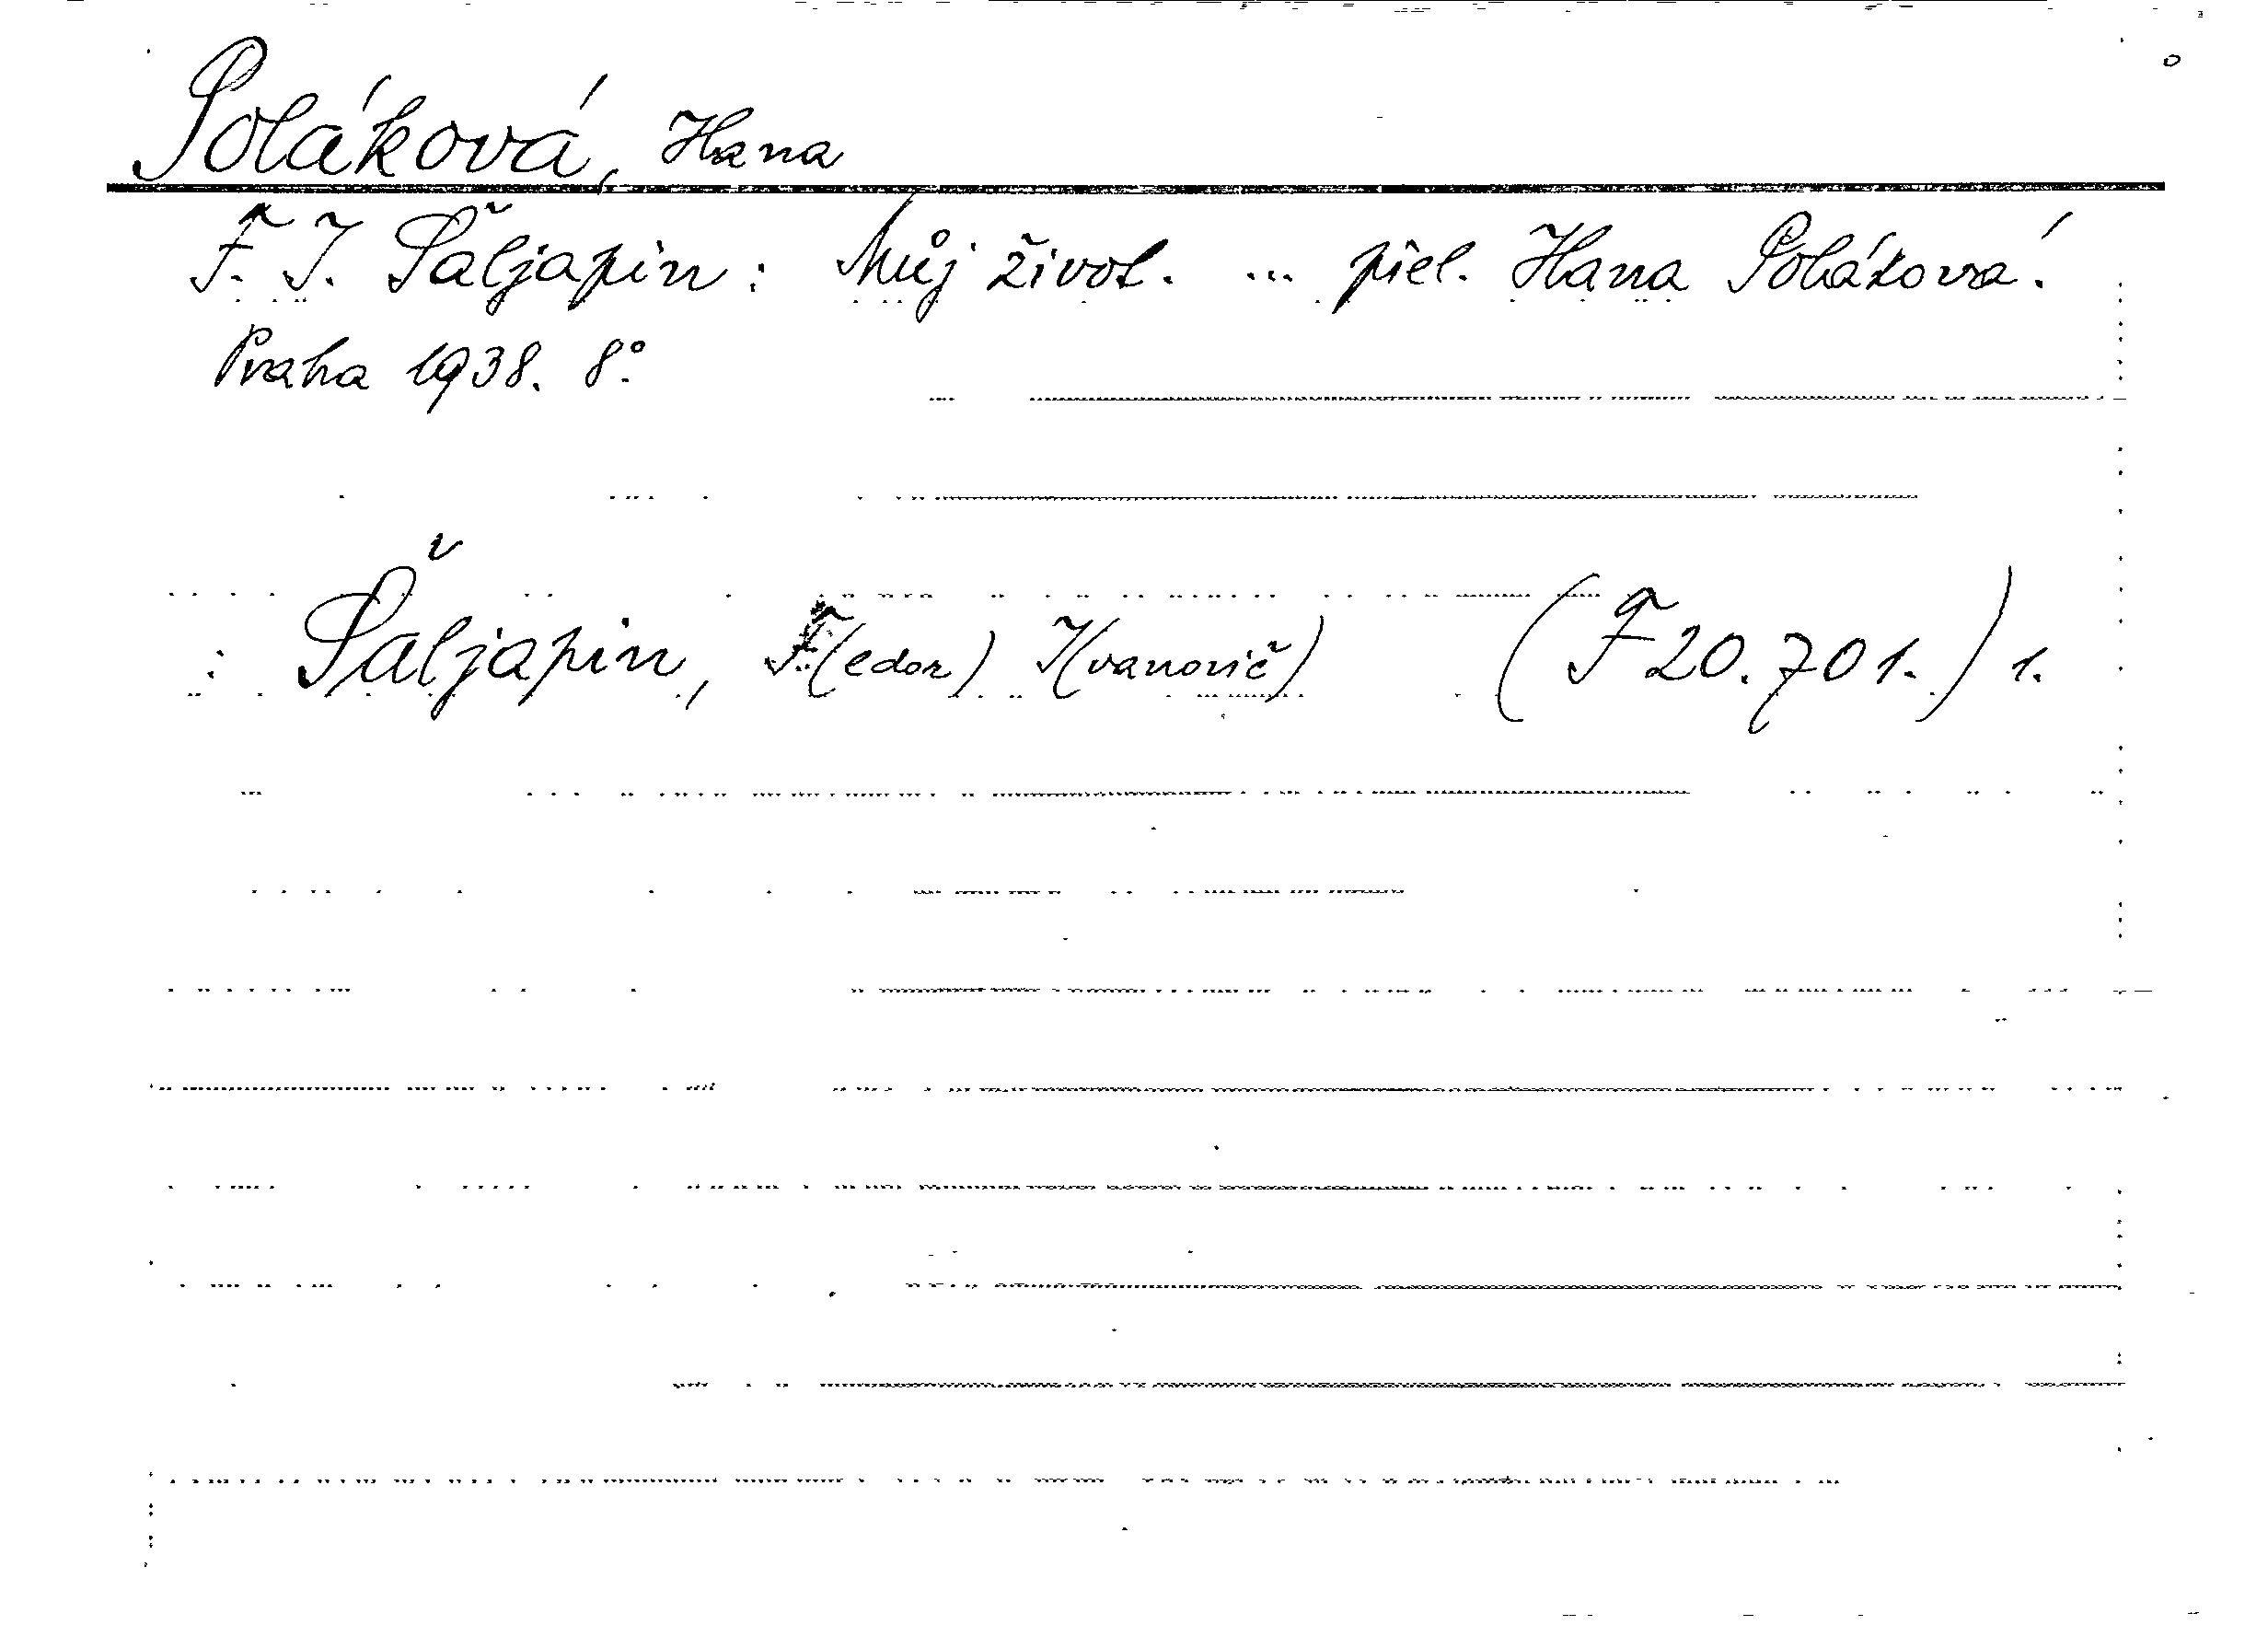 Poláková, Hana
F. I. Šaljapin: Můj život. ... přel. Hana Poláková.
Praha 1938. 8°.
: Šaljapin, F(edor) I(vanovič) (F 20.701.) 1.